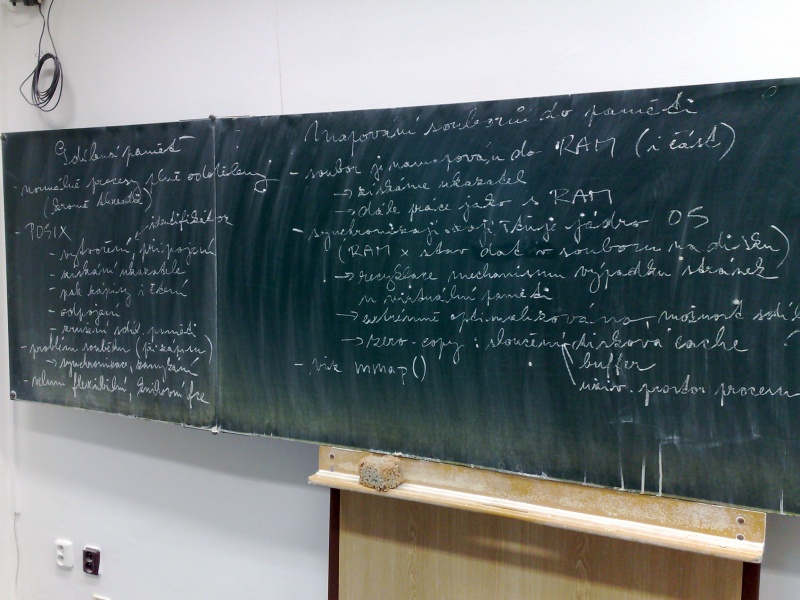 Sdílená paměť
- normálně procesy plně odděleny
(kromě threadů)
- POSIX
identifikátor
- vytvoření, připojení
- získání ukazatele
- pak zápisy i čtení
- odpojení
- zrušení sdíl. paměti
- problém souběhu (při zápisu)
→ synchronizace, zamykání
- velmi flexibilní, knihovní fce
Mapování souborů do paměti
- soubor je namapován do RAM (i část)
→ získáme ukazatel
→ dále práce jako s RAM
- synchronizaci zajišťuje jádro OS
(RAM x stav dat v souboru na disku)
→ recyklace mechanismu výpadku stránek
u virtuální paměti
→ extrémně optimalizována, možnost
→ zero-copy: sloučení disková cache
buffer
uživ. prostor procesu
- viz mmap()